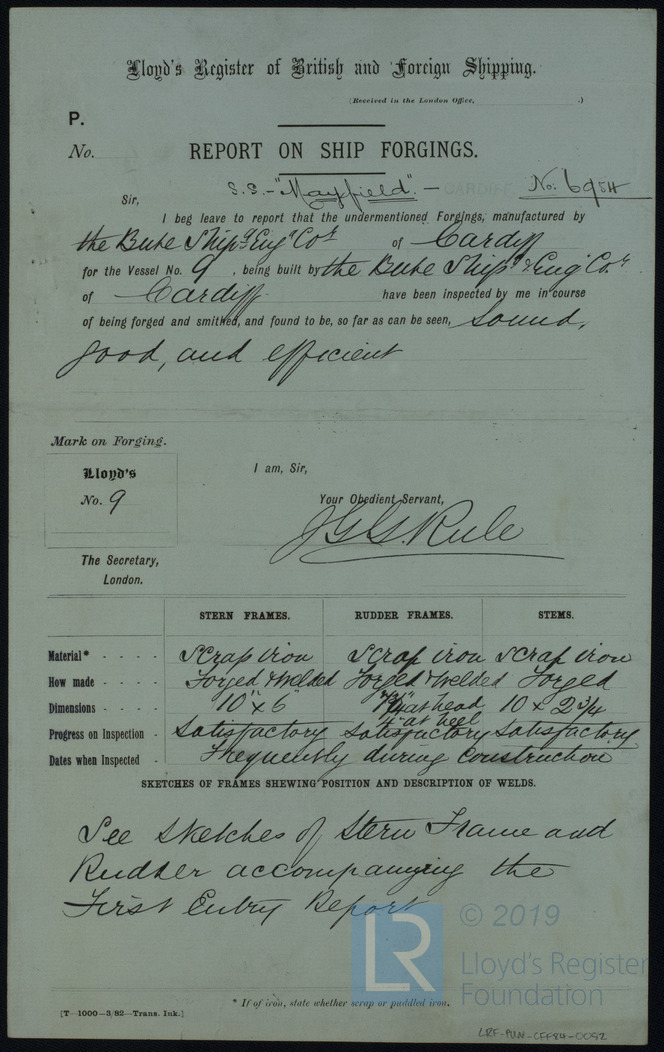 Lloyd's Register of British and Foreign Shipping.
(Received in the London Office, .)
P.
No. REPORT ON SHIP FORGINGS.
S.S. "Mayfield" — CARDIFF No. 6954
Sir,
I beg leave to report that the undermentioned Forgings, manufactured by
the Bute Shipg Engg Coy of Cardiff
for the Vessel No. 9, being built by the Bute Shipg & Eng Coy
of Cardiff have been inspected by me in course
of being forged and smithed, and found to be, so far as can be seen, sound,
good, and efficient
Mark on Forging.
Lloyd's
No. 9
I am, Sir,
Your Obedient Servant,
J G G Rule
The Secretary,
London.
STERN FRAMES. RUDDER FRAMES. STEMS.
Material* - - - - Scrap iron Scrap iron Scrap iron
How made - - - - Forged & welded Forged & welded Forged
Dimensions - - - - 10" x 6" at head 10 x 2 3/4
4" at heel
Progress on Inspection - Satisfactory Satisfactory Satisfactory
Dates when Inspected - Frequently during construction
SKETCHES OF FRAMES SHEWING POSITION AND DESCRIPTION OF WELDS.
See sketches of Stern Frame and
Rudder accompanying the
First Entry Report
© 2019
LR
Lloyd's Register
Foundation
* If of iron, state whether scrap or puddled iron.
[T—1000—3/82—Trans. Ink.]
LRF-PUN-CFF84-0092